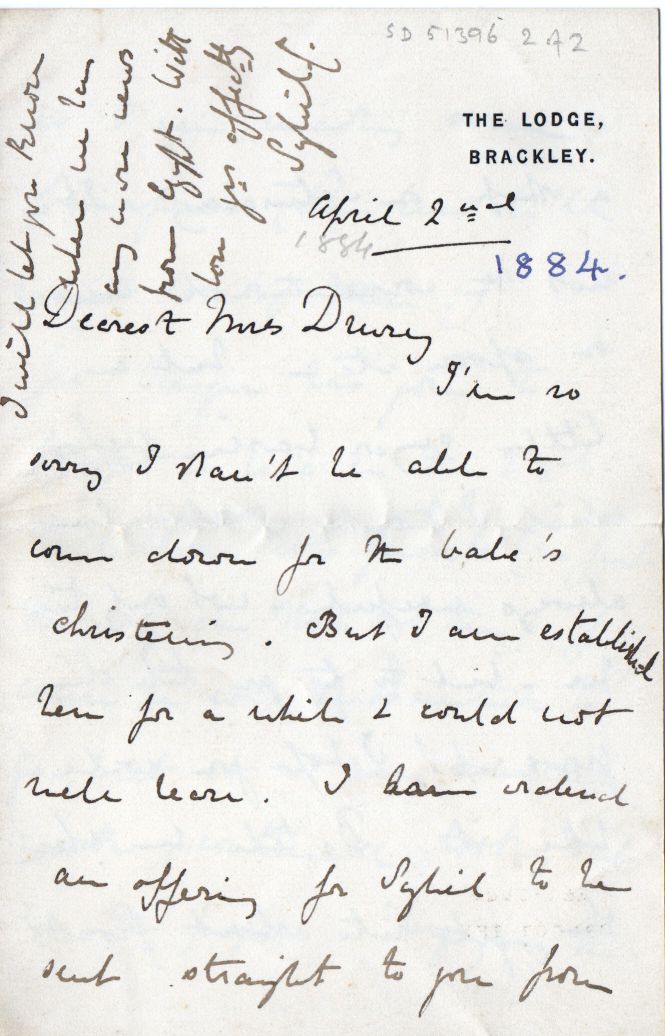 SD 51396 2 of 2
THE LODGE,
BRACKLEY.
April 2nd
1884
1884.
Dearest Mrs Drury
I'm so
sorry I shan't be able to
come down for the babe's
christening. But I am established
here for a while & could not
well leave. I have ordered
an offering for Sybil to be
sent straight to you from
I will let you know
when we have
any more news
from Egypt. With
love yrs affectly
Sybil